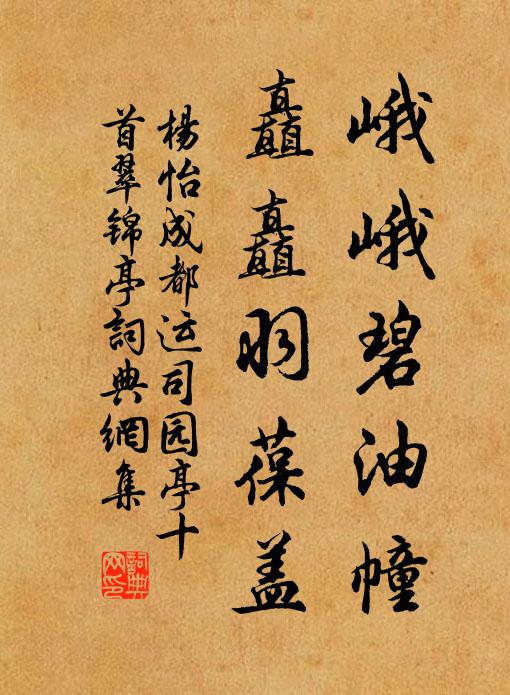 峨峨碧油幢
矗矗羽葆盖
楊怡成都运司园亭十
首翠锦亭詞典網集
詞典網印